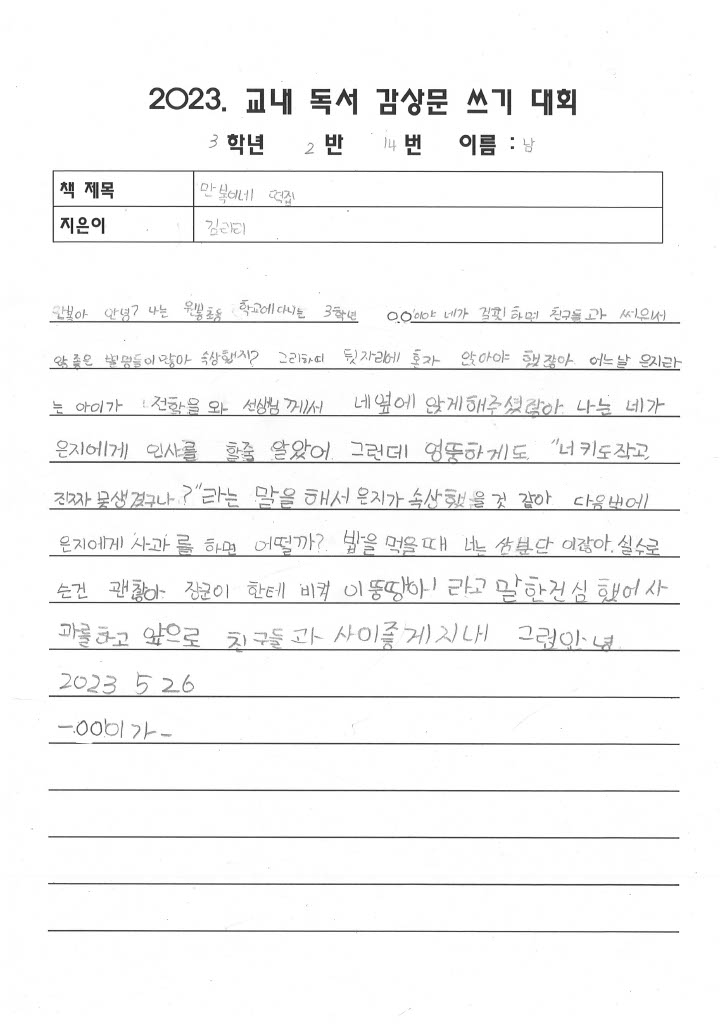 2023. 교내 독서 감상문 쓰기 대회
3 학년 2 반 14 번 이름 : 남
책 제목 만복이네 떡집
지은이 김리리
만복아 안녕? 나는 원봉초등 학교에다니는 3학년 OO이야 네가 걸핏하면 친구들과 싸우서
않좋은 별명들이 많아 속상했지? 그리하띠 뒷자리에 혼자 앉아야 했잖아. 어느날 은지라
는 아이가 전학을 와 선생님께서 네옆에 앉게해주셨잖아 나는 네가
은지에게 인사를 할줄 알았어 그런데 엉뚱하게도 "너 키도작고,
진짜 못생겼구나?"라는 말을 해서 은지가 속상했을 것 같아 다음번에
은지에게 사과를 하면 어떨까? 밥을 먹을때 너는 삼분단 이잖아. 실수로
슨건 괜찮아 장군이 한테 비켜 이뚱땅아! 라고 말한건심했어사
과를하고 앞으로 친구들과 사이좋게지내 그럼안녕
2023 5 26
-OO이가-